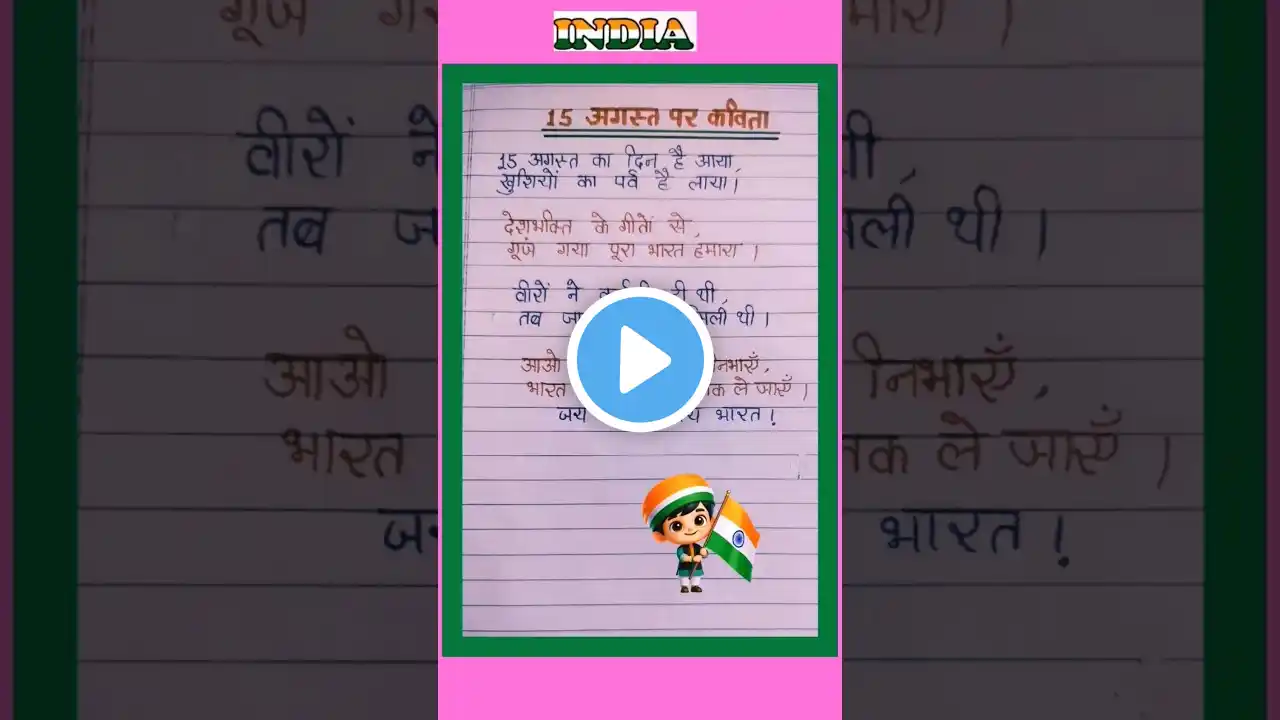 INDIA
15 अगस्त पर कविता
15 अगस्त का दिन है आया,
खुशियों का पर्व है लाया।
देशभक्ति के गीतों से,
गूंज गया पूरा भारत हमारा।
वीरों ने दी थी,
तब मिली थी।
आओ निभाएँ,
भारत तक ले जाएँ।
जय भारत!